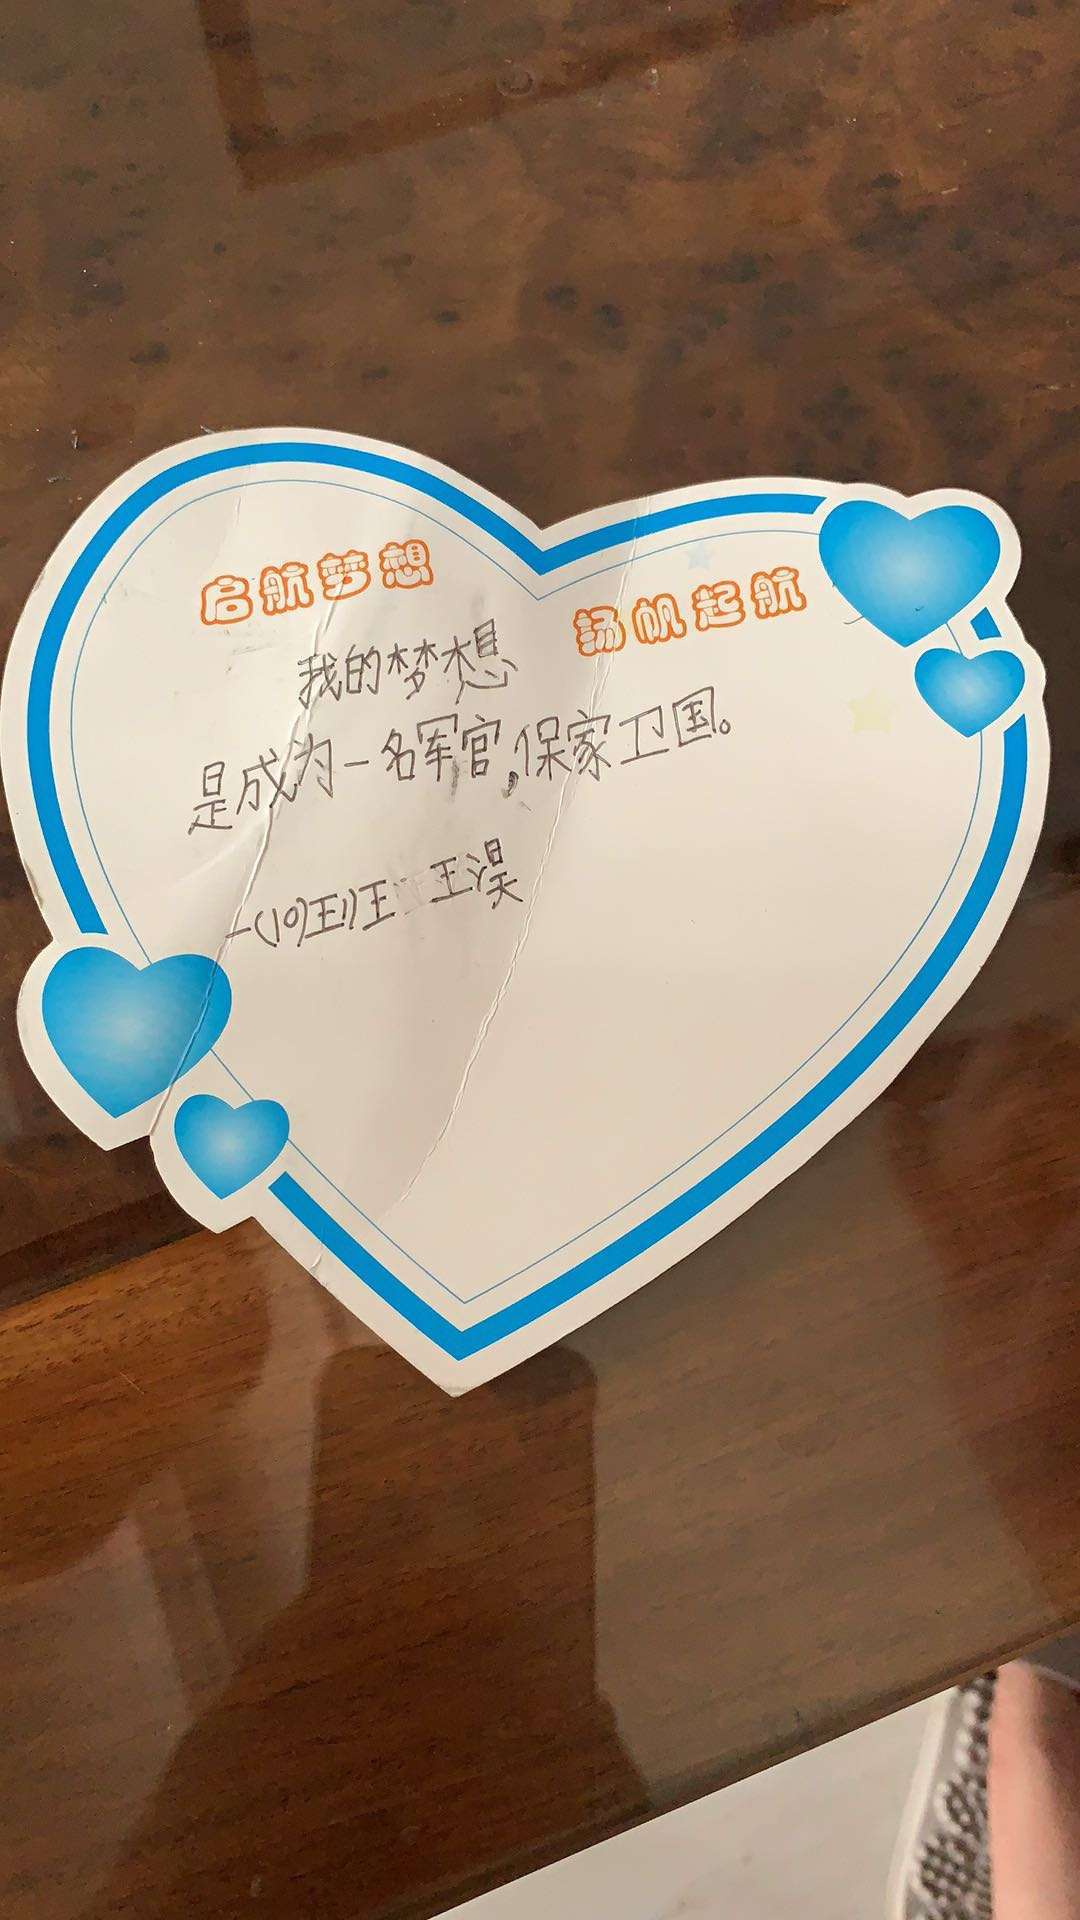 启航梦想
扬帆起航
我的梦想
是成为一名军官,保家卫国。
一(10)班王 王淏